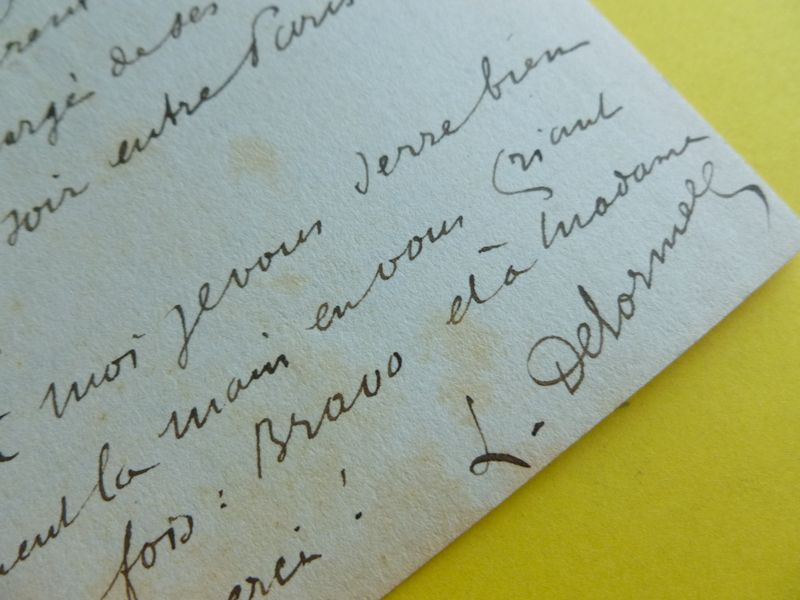 argé de ses
soir entre Paris
moi je vous serre bien
ment la main en vous criant
fois : Bravo et à Madame
erci ! L. Delormel